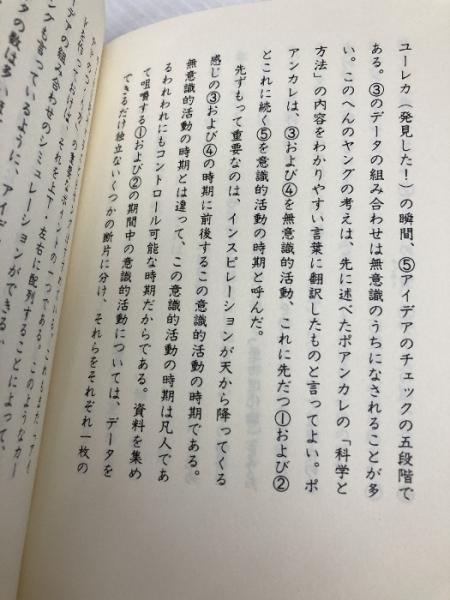 ユーレカ（発見した！）の瞬間、⑤アイデアのチェックの五段階で
ある。③のデータの組み合わせは無意識のうちになされることが多
い。このへんのヤングの考えは、先に述べたポアンカレの「科学と
方法」の内容をわかりやすい言葉に翻訳したものと言ってよい。ポ
アンカレは、③および④を無意識的活動の時期、これに先だつ①および②
とこれに続く⑤を意識的活動の時期と呼んだ。
先ずもって重要なのは、インスピレーションが天から降ってくる
感じの③および④の時期に前後するこの意識的活動の時期である。
無意識的活動の時期とは違って、この意識的活動の時期は凡人であ
るわれわれにもコントロール可能な時期だからである。資料を集め
て咀嚼する①および②の期間中の意識的活動については、データを
できるだけ独立ないくつかの断片に分け、それらをそれぞれ一枚の
の重要なポイントの一つである。これもまた
ておけば、それを上下、左右に配列することによって、
デアの組み合わせのシミュレーションができる。このようなカー
ングも言っているように、アイデ
タの数は多いほ